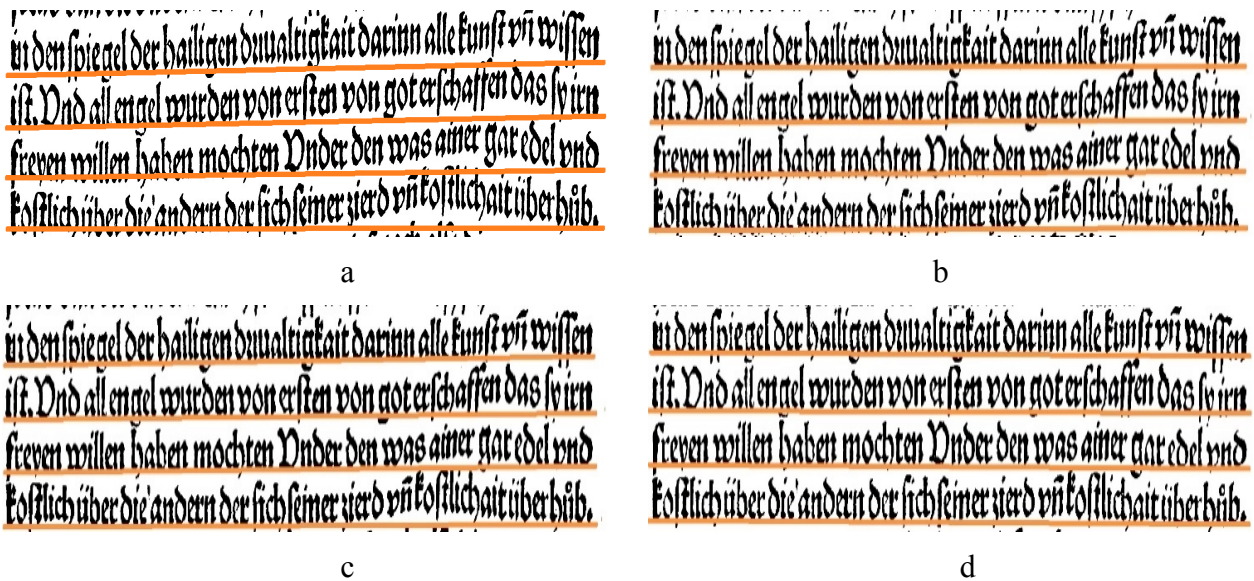 in den ſpiegel der hailigen driualtigkait darinn alle kunſt vñ wiſſen
iſt. Vnd all engel wurden von erſten von got erſchaffen das ſy irn
freyen willen haben mochten Vnder den was ainer gar edel vnd
koſtlich über die andern der ſich ſeiner zierd vñ koſtlichait überhůb.
a
in den ſpiegel der hailigen driualtigkait darinn alle kunſt vñ wiſſen
iſt. Vnd all engel wurden von erſten von got erſchaffen das ſy irn
freyen willen haben mochten Vnder den was ainer gar edel vnd
koſtlich über die andern der ſich ſeiner zierd vñ koſtlichait überhůb.
b
in den ſpiegel der hailigen driualtigkait darinn alle kunſt vñ wiſſen
iſt. Vnd all engel wurden von erſten von got erſchaffen das ſy irn
freyen willen haben mochten Vnder den was ainer gar edel vnd
koſtlich über die andern der ſich ſeiner zierd vñ koſtlichait überhůb.
c
in den ſpiegel der hailigen driualtigkait darinn alle kunſt vñ wiſſen
iſt. Vnd all engel wurden von erſten von got erſchaffen das ſy irn
freyen willen haben mochten Vnder den was ainer gar edel vnd
koſtlich über die andern der ſich ſeiner zierd vñ koſtlichait überhůb.
d